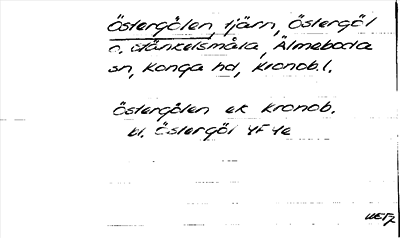 Östergölen, tjärn, Östergöl
o. Stänkelsmåla, Älmeboda
sn, Konga hd, Kronob.l.
Östergölen ek Kronob.
bl. Östergöl 4F 4e